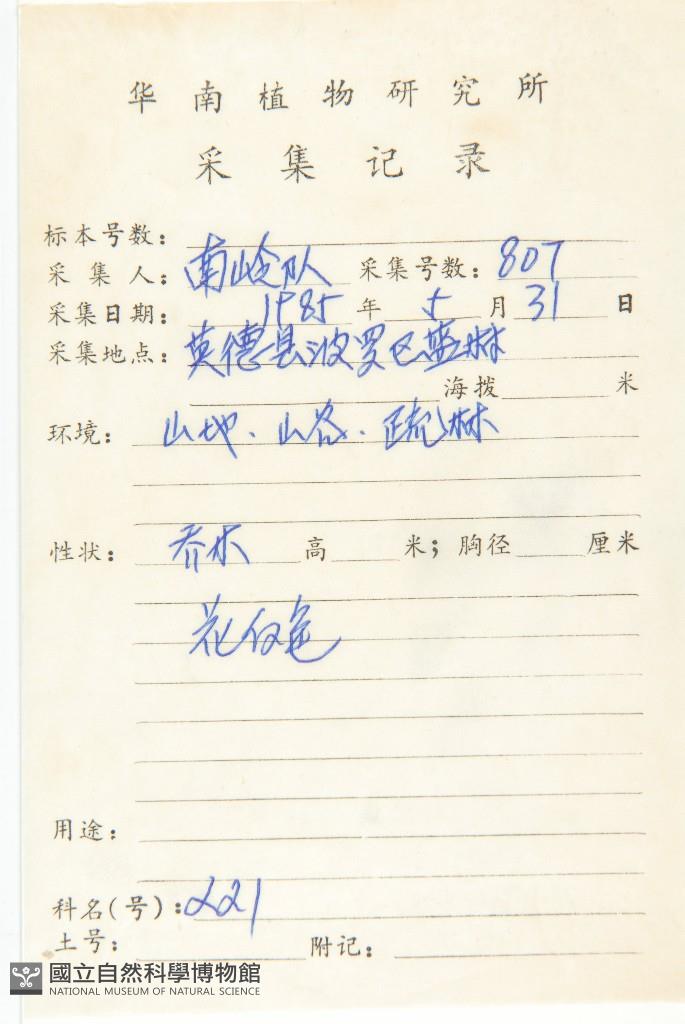 华南植物研究所
采集记录
标本号数:
采集人: 南岭队 采集号数: 807
采集日期: 1985 年 5 月 31 日
采集地点: 英德县波罗区 林
海拨 米
环境: 山地、山谷、疏林
性状: 乔木 高 米; 胸径 厘米
花 色
用途:
科名(号): 221
土号: 附记:
國立自然科學博物館
NATIONAL MUSEUM OF NATURAL SCIENCE